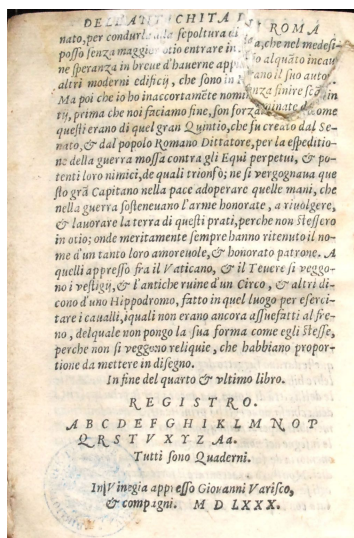 DELL'ANTICHITA DI ROMA
nato, per condurla alla sepoltura di a, che nel medesi-
posso senza maggior otio entrare in lo alquāto incau
ne speranza in breue d'hauerne app ano il suo auto
altri moderni edificij, che sono in R nza finire scā in
Ma poi che io ho inaccortamēte nomi minate
tij, prima che noi faciamo fine, son forza come
questi erano di quel gran Quintio, che fu creato dal Se-
nato, & dal popolo Romano Dittatore, per la espeditio-
ne della guerra mossa contra gli Equi perpetui, & po-
tenti loro nimici, de quali trionfò; ne si vergognaua que
sto grā Capitano nella pace adoperare quelle mani, che
nella guerra sosteneuano l'arme honorate, a riuolgere,
& lauorare la terra di questi prati, perche non stessero
in otio; onde meritamente sempre hanno ritenuto il no-
me d'un tanto loro amoreuole, & honorato patrone. A
quelli appresso fra il Vaticano, & il Teuere si veggo-
no i vestigij, & l'antiche ruine d'un Circo, & altri di-
cono d'uno Hippodromo, fatto in quel luogo per eserci-
tare i caualli, iquali non erano ancora assuefatti al fre-
no, delquale non pongo la sua forma come egli stesse,
perche non si veggono reliquie, che habbiano propor-
tione da mettere in disegno.
In fine del quarto & vltimo libro.
REGISTRO.
A B C D E F G H I K L M N O P
Q R S T V X Y Z Aa.
Tutti sono Quaderni.
In Vinegia appresso Giouanni Varisco,
& compagni. M D LXXX.